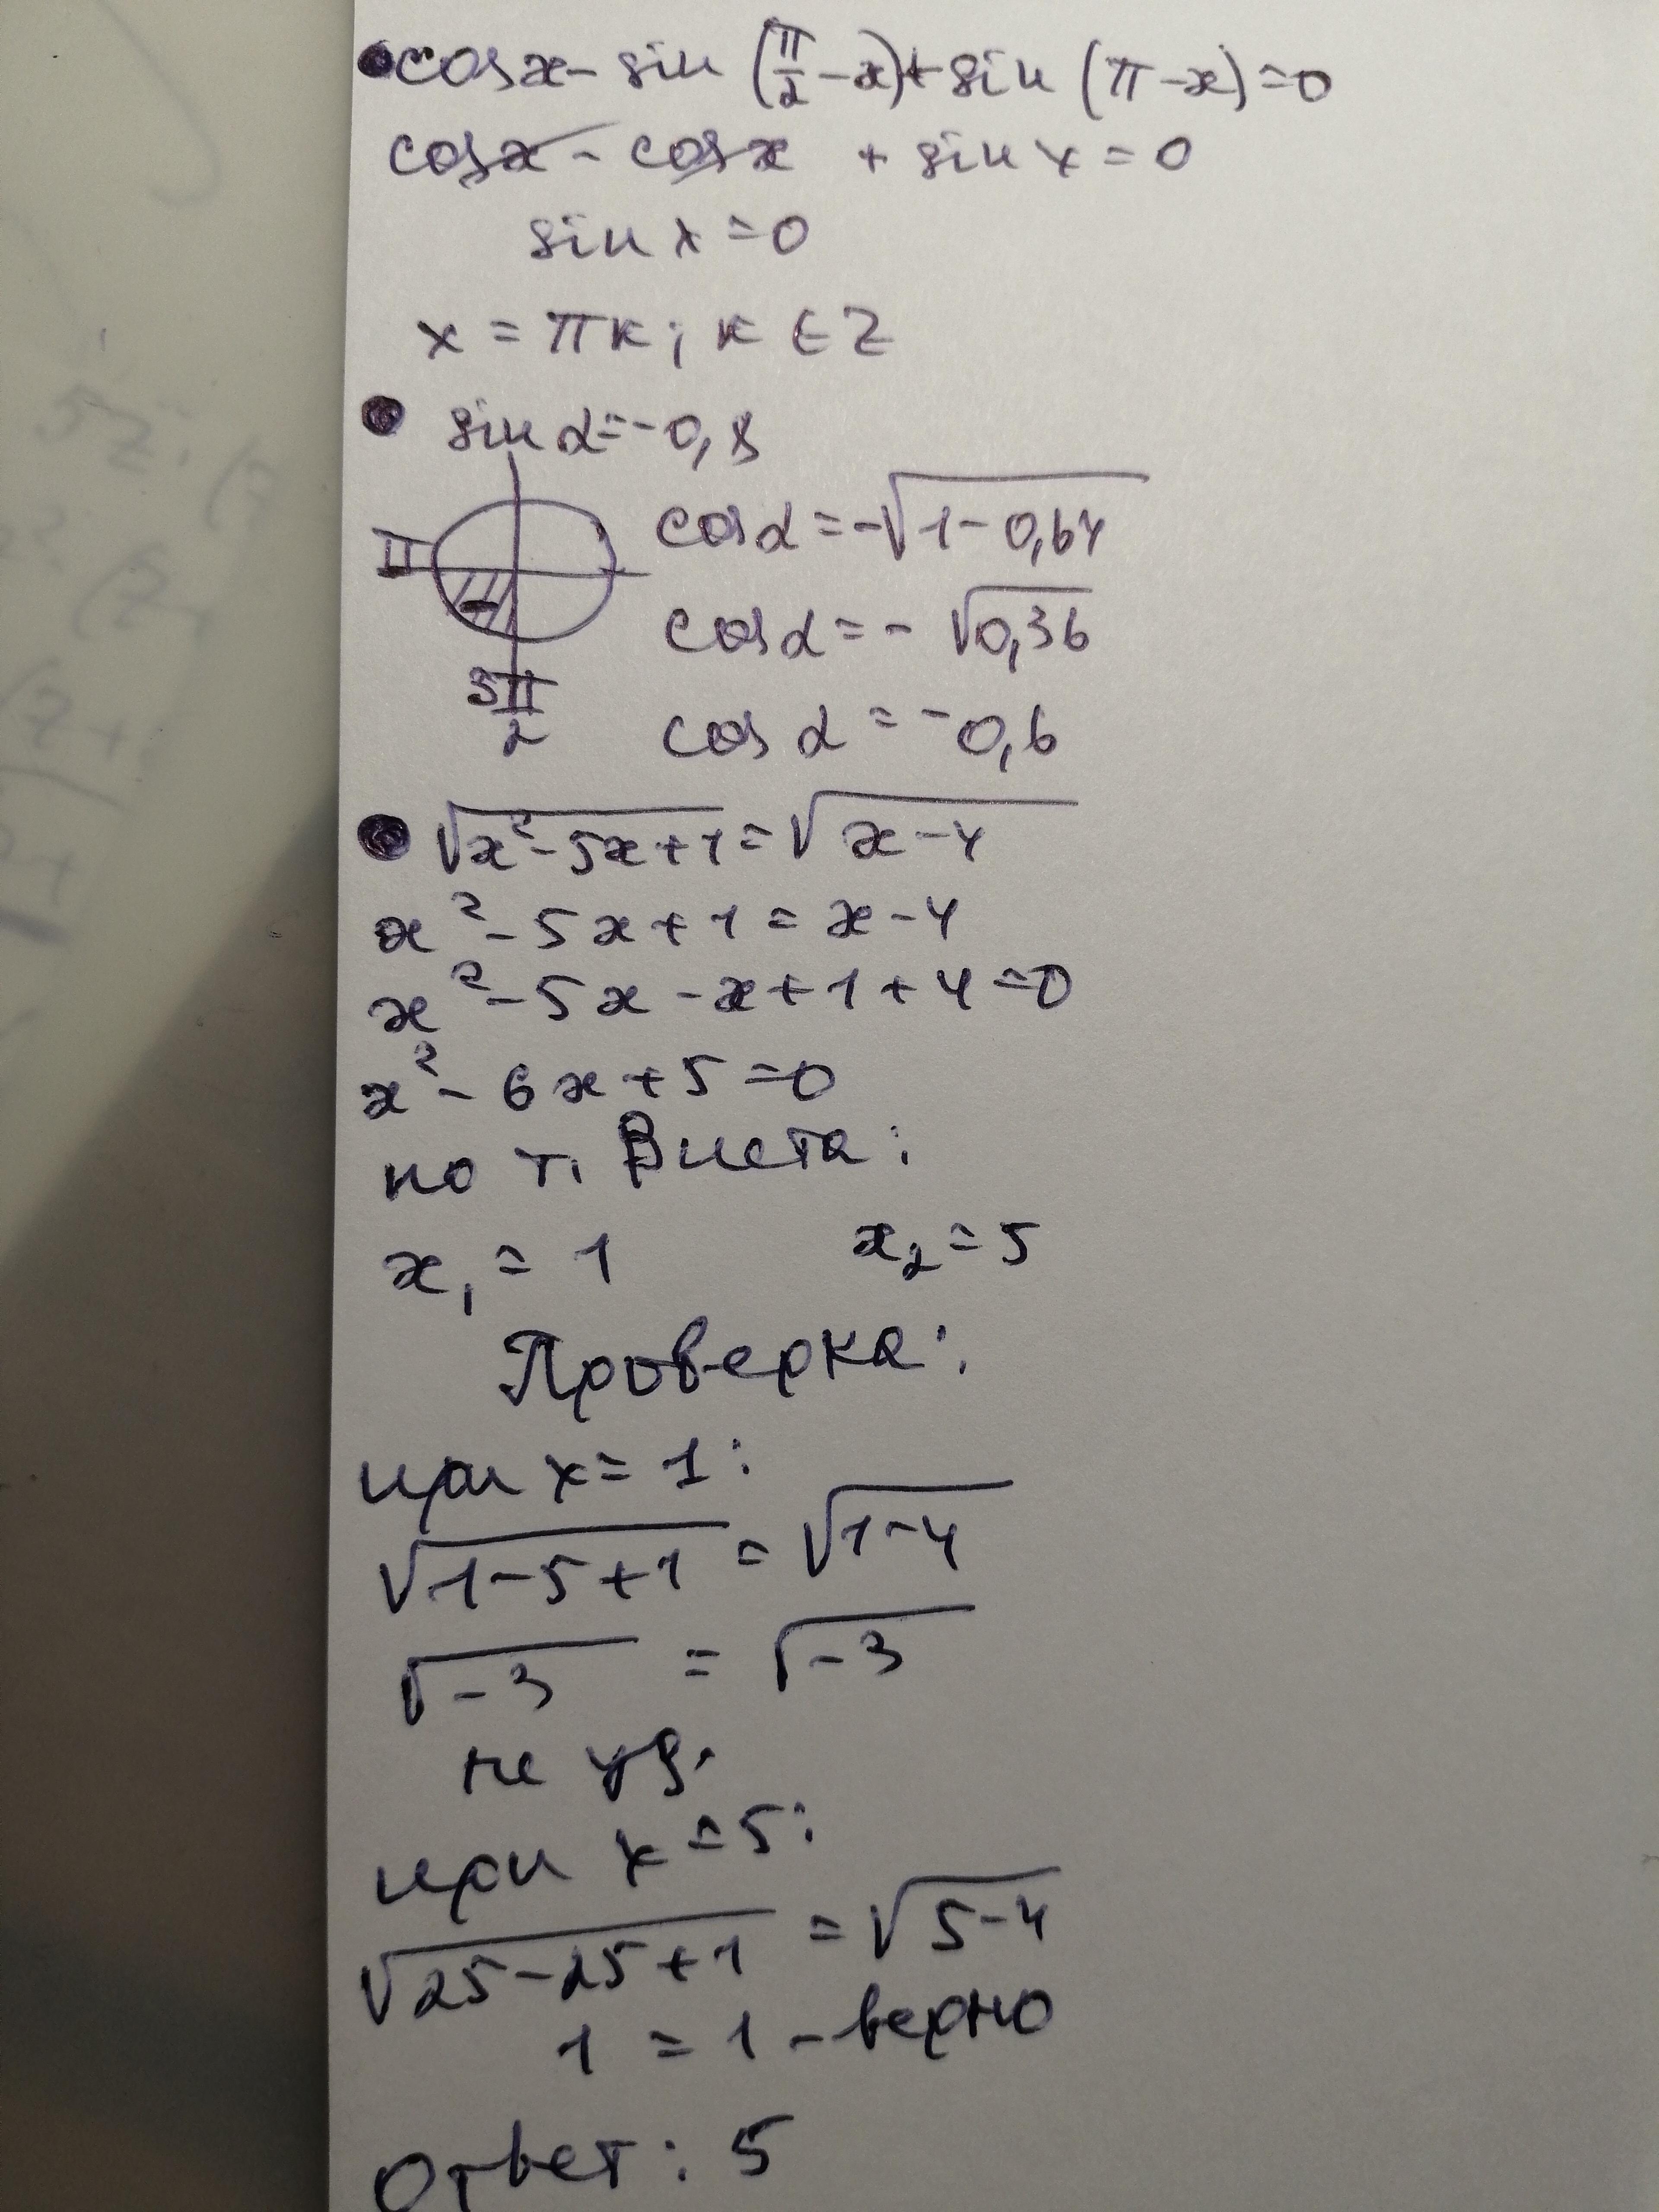 cosx - sin (π/2 - x) + sin (π - x) = 0
cosx - cosx + sin x = 0
sin x = 0
x = πk; k ∈ Z
sin α = -0,8
cos α = -√(1 - 0,64)
π
cos α = - √0,36
3π/2
cos α = -0,6
√(x² - 5x + 1) = √(x - 4)
x² - 5x + 1 = x - 4
x² - 5x - x + 1 + 4 = 0
x² - 6x + 5 = 0
по т. Виета:
x₁ = 1 x₂ = 5
Проверка:
при x = 1:
√(1 - 5 + 1) = √(1 - 4)
√-3 = √-3
не уд.
при x = 5:
√(25 - 25 + 1) = √(5 - 4)
1 = 1 - верно
Ответ: 5